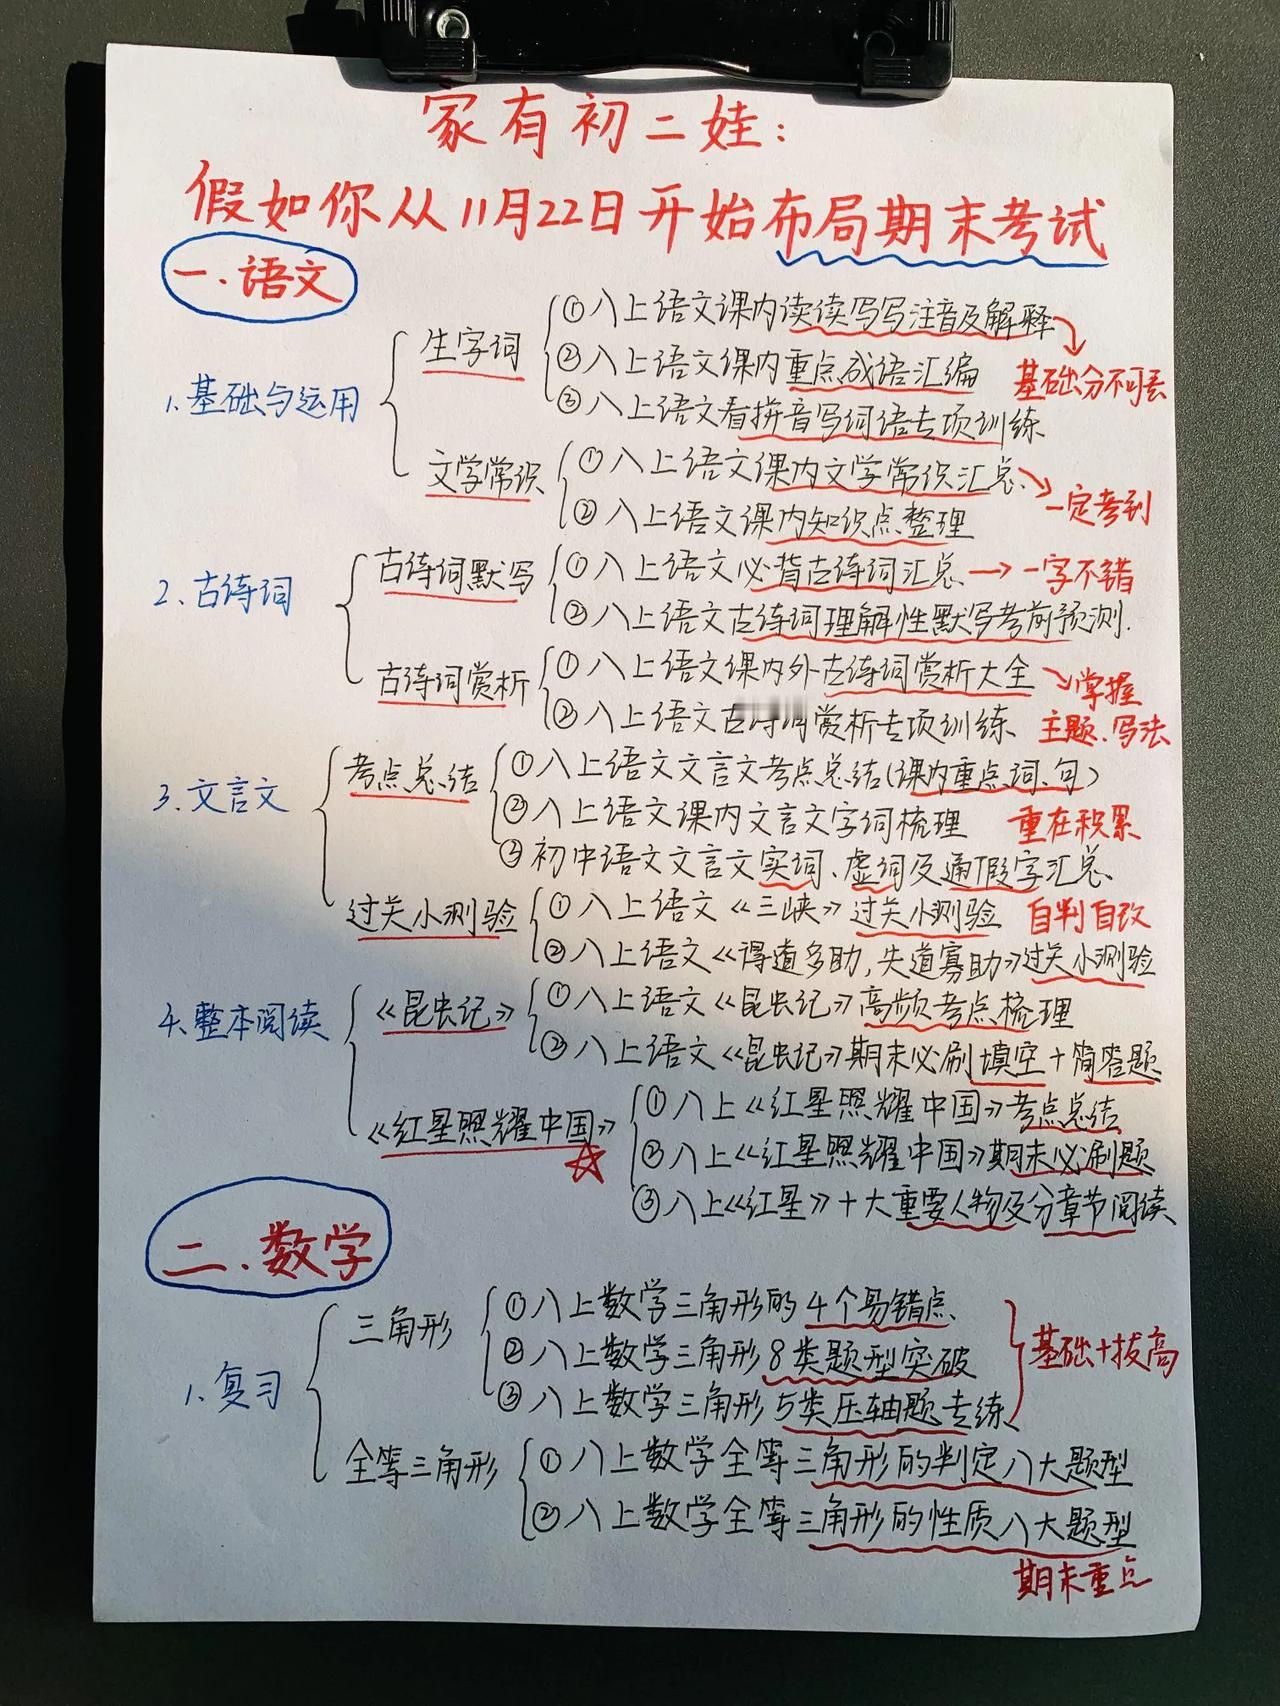 家有初二娃:
假如你从11月22日开始布局期末考试
一.语文
1.基础与运用
生字词
①八上语文课内读读写写注音及解释
②八上语文课内重点成语汇编
③八上语文看拼音写词语专项训练
基础分不可丢
文学常识
①八上语文课内文学常识汇总
②八上语文课内知识点整理
一定考到
2、古诗词
古诗词默写
①八上语文必背古诗词汇总→一字不错
②八上语文古诗词理解性默写考前预测.
古诗词赏析
①八上语文课内外古诗词赏析大全
②八上语文古诗词赏析专项训练
掌握
主题、写法
3、文言文
考点总结
①八上语文文言文考点总结(课内重点词、句)
②八上语文课内文言文字词梳理
③初中语文文言文实词、虚词及通假字汇总
重在积累
过关小测验
①八上语文《三峡》过关小测验
②八上语文《得道多助,失道寡助》过关小测验
自判自改
4、整本阅读
《昆虫记》
①八上语文《昆虫记》高频考点梳理
②八上语文《昆虫记》期末必刷填空+简答题
《红星照耀中国》
①八上《红星照耀中国》考点总结
②八上《红星照耀中国》期末必刷题
③八上《红星》十大重要人物及分章节阅读
二.数学
1、复习
三角形
①八上数学三角形的4个易错点
②八上数学三角形8类题型突破
③八上数学三角形5类压轴题专练
基础+拔高
全等三角形
①八上数学全等三角形的判定八大题型
②八上数学全等三角形的性质八大题型
期末重点